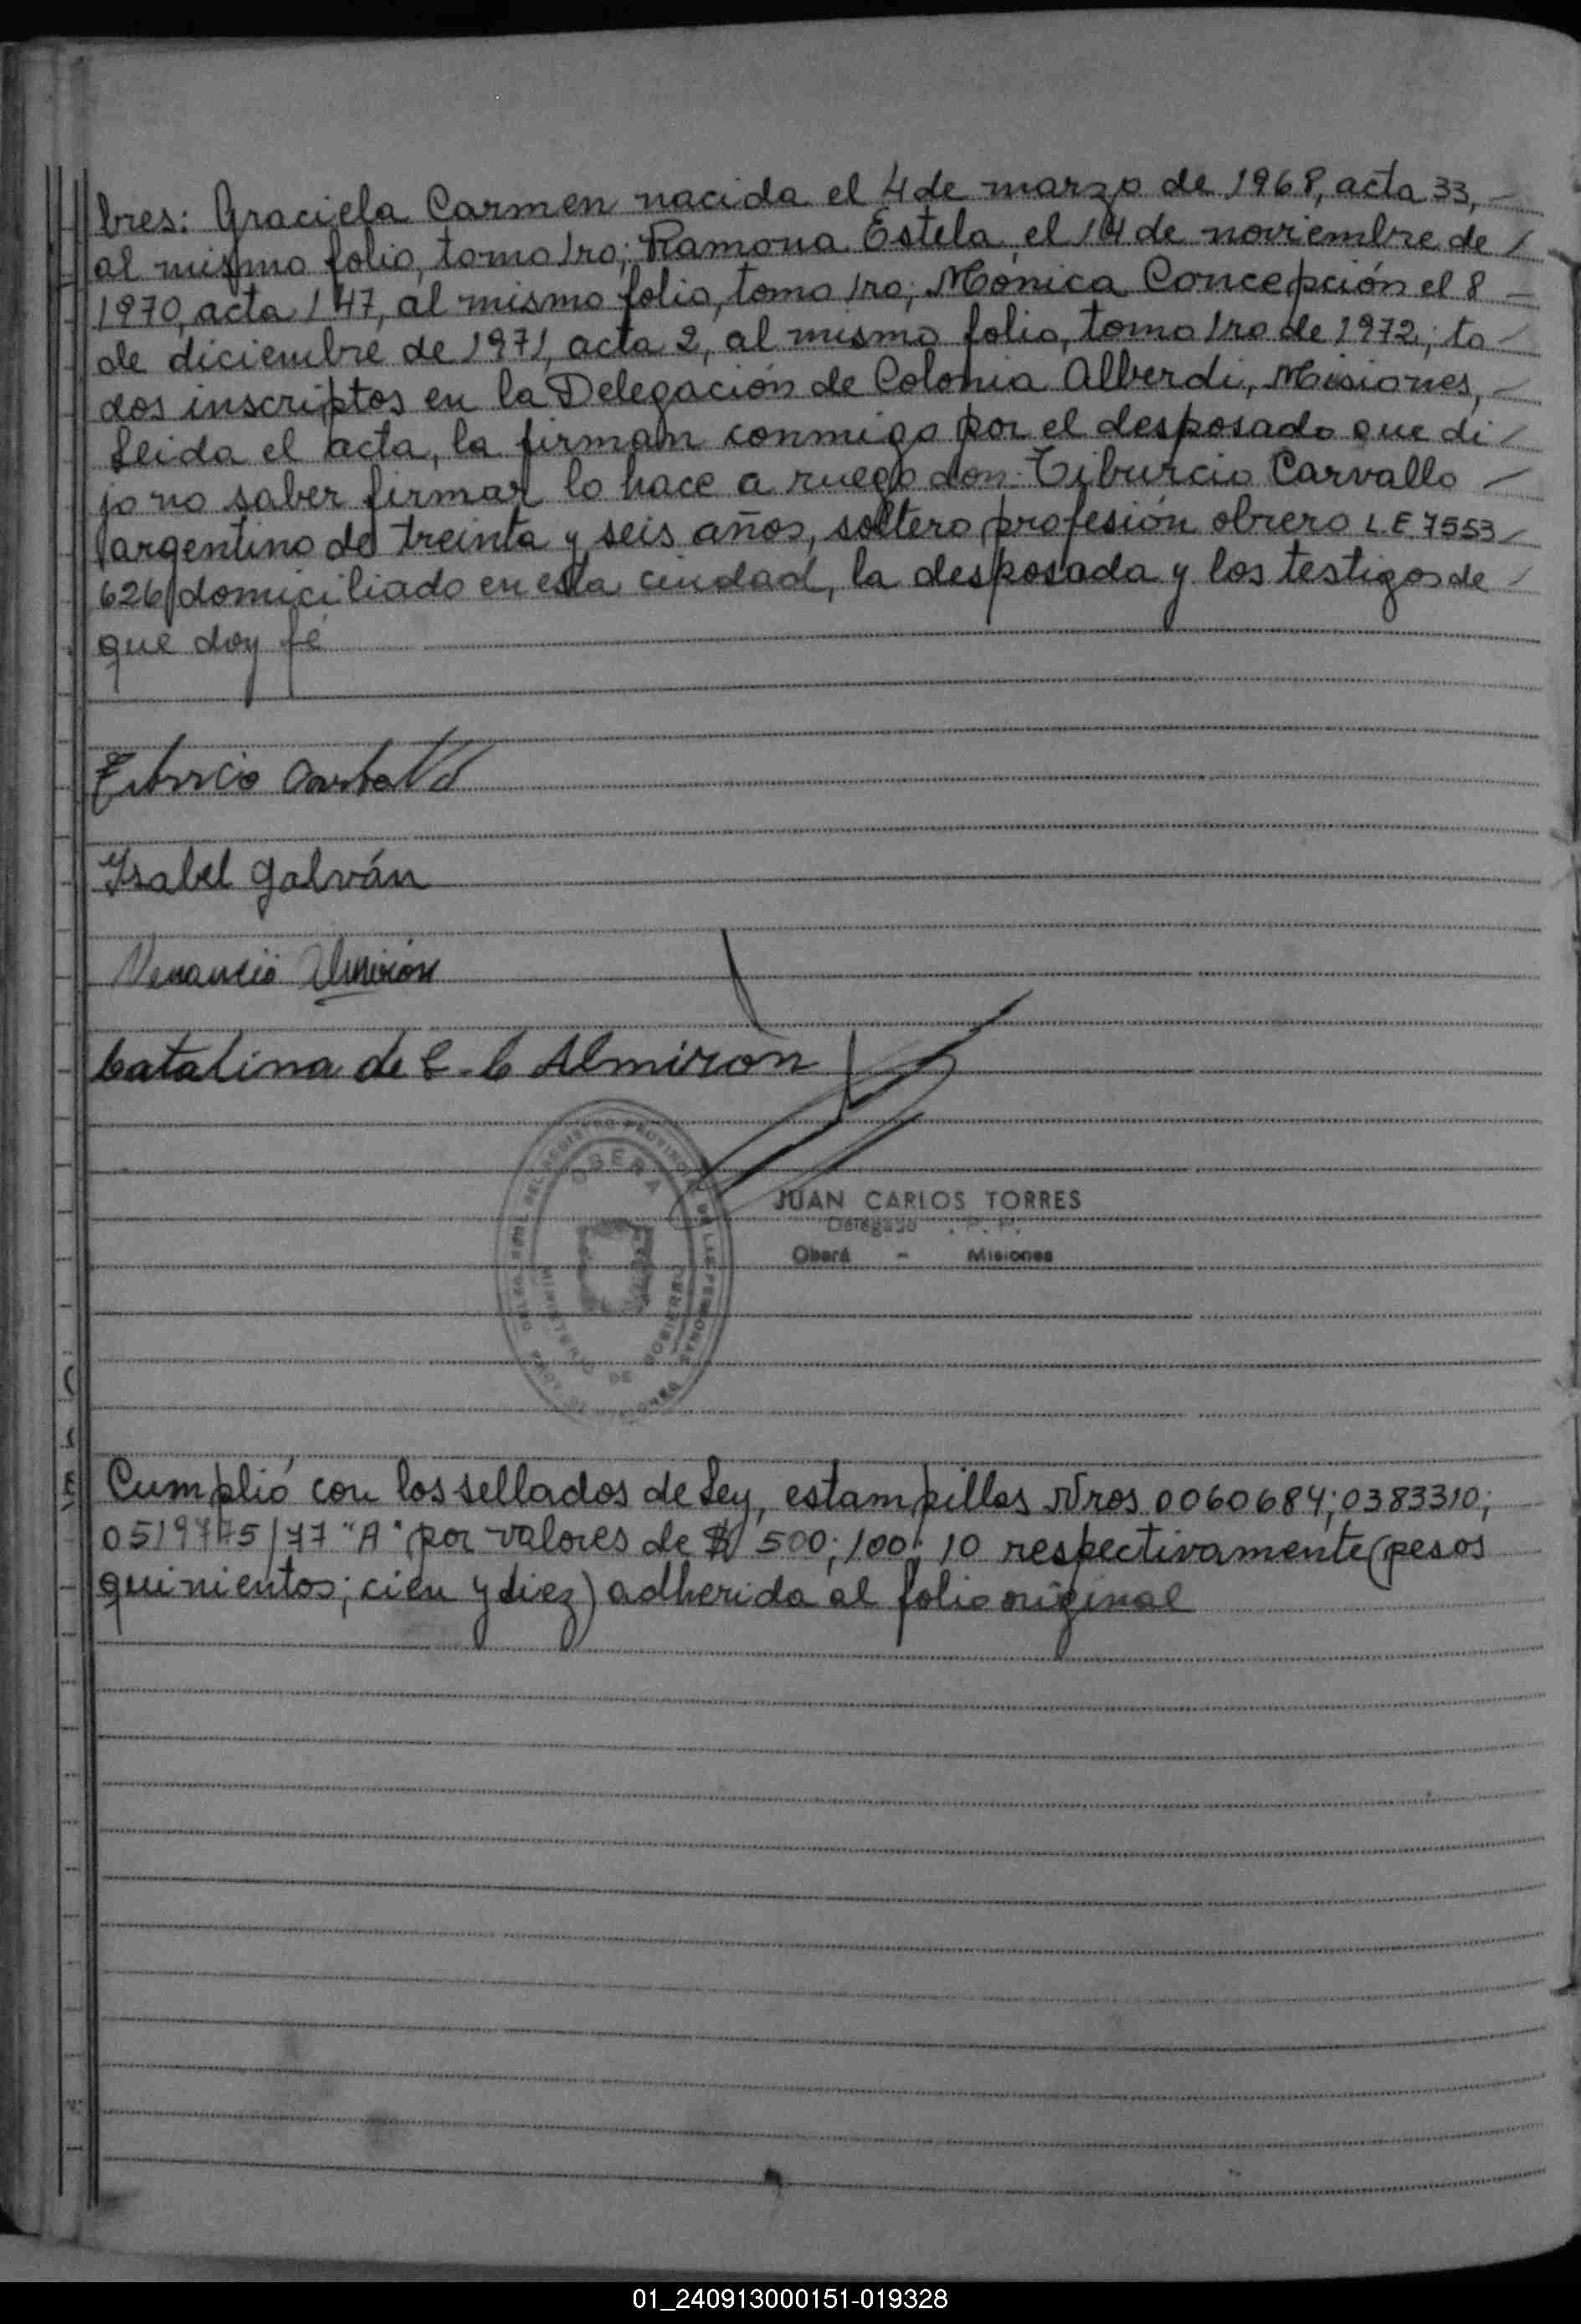 bres: Graciela Carmen nacida el 4 de marzo de 1968, acta 33, —
al mismo folio, tomo 1ro; Ramona Estela, el 14 de noviembre de /
1970, acta 147, al mismo folio, tomo 1ro; Mónica Concepción el 8 —
de diciembre de 1971, acta 2, al mismo folio, tomo 1ro de 1972; to —
dos inscriptos en la Delegación de Colonia Alberdi, Misiones, —
Leida el acta, la firman conmigo por el desposado que di /
jo no saber firmar lo hace a ruego don: Tiburcio Carvallo —
argentino de treinta y seis años, soltero, profesión obrero L E 7553 /
626 domiciliado en esta ciudad, la desposada y los testigos de /
que doy fé
Tiburcio Carballo
Ysabel Galván
Venancio Almirón
Catalina de C. C Almiron
OBERA
JUAN CARLOS TORRES
Delegado
Oberá - Misiones
Cumplió con los sellados de Ley, estampillas Nros 0060684; 0383310;
/77 "A" por valores de $ 500; 100; 10 respectivamente (pesos
quinientos; cien y diez) adherida al folio original
01_240913000151-019328